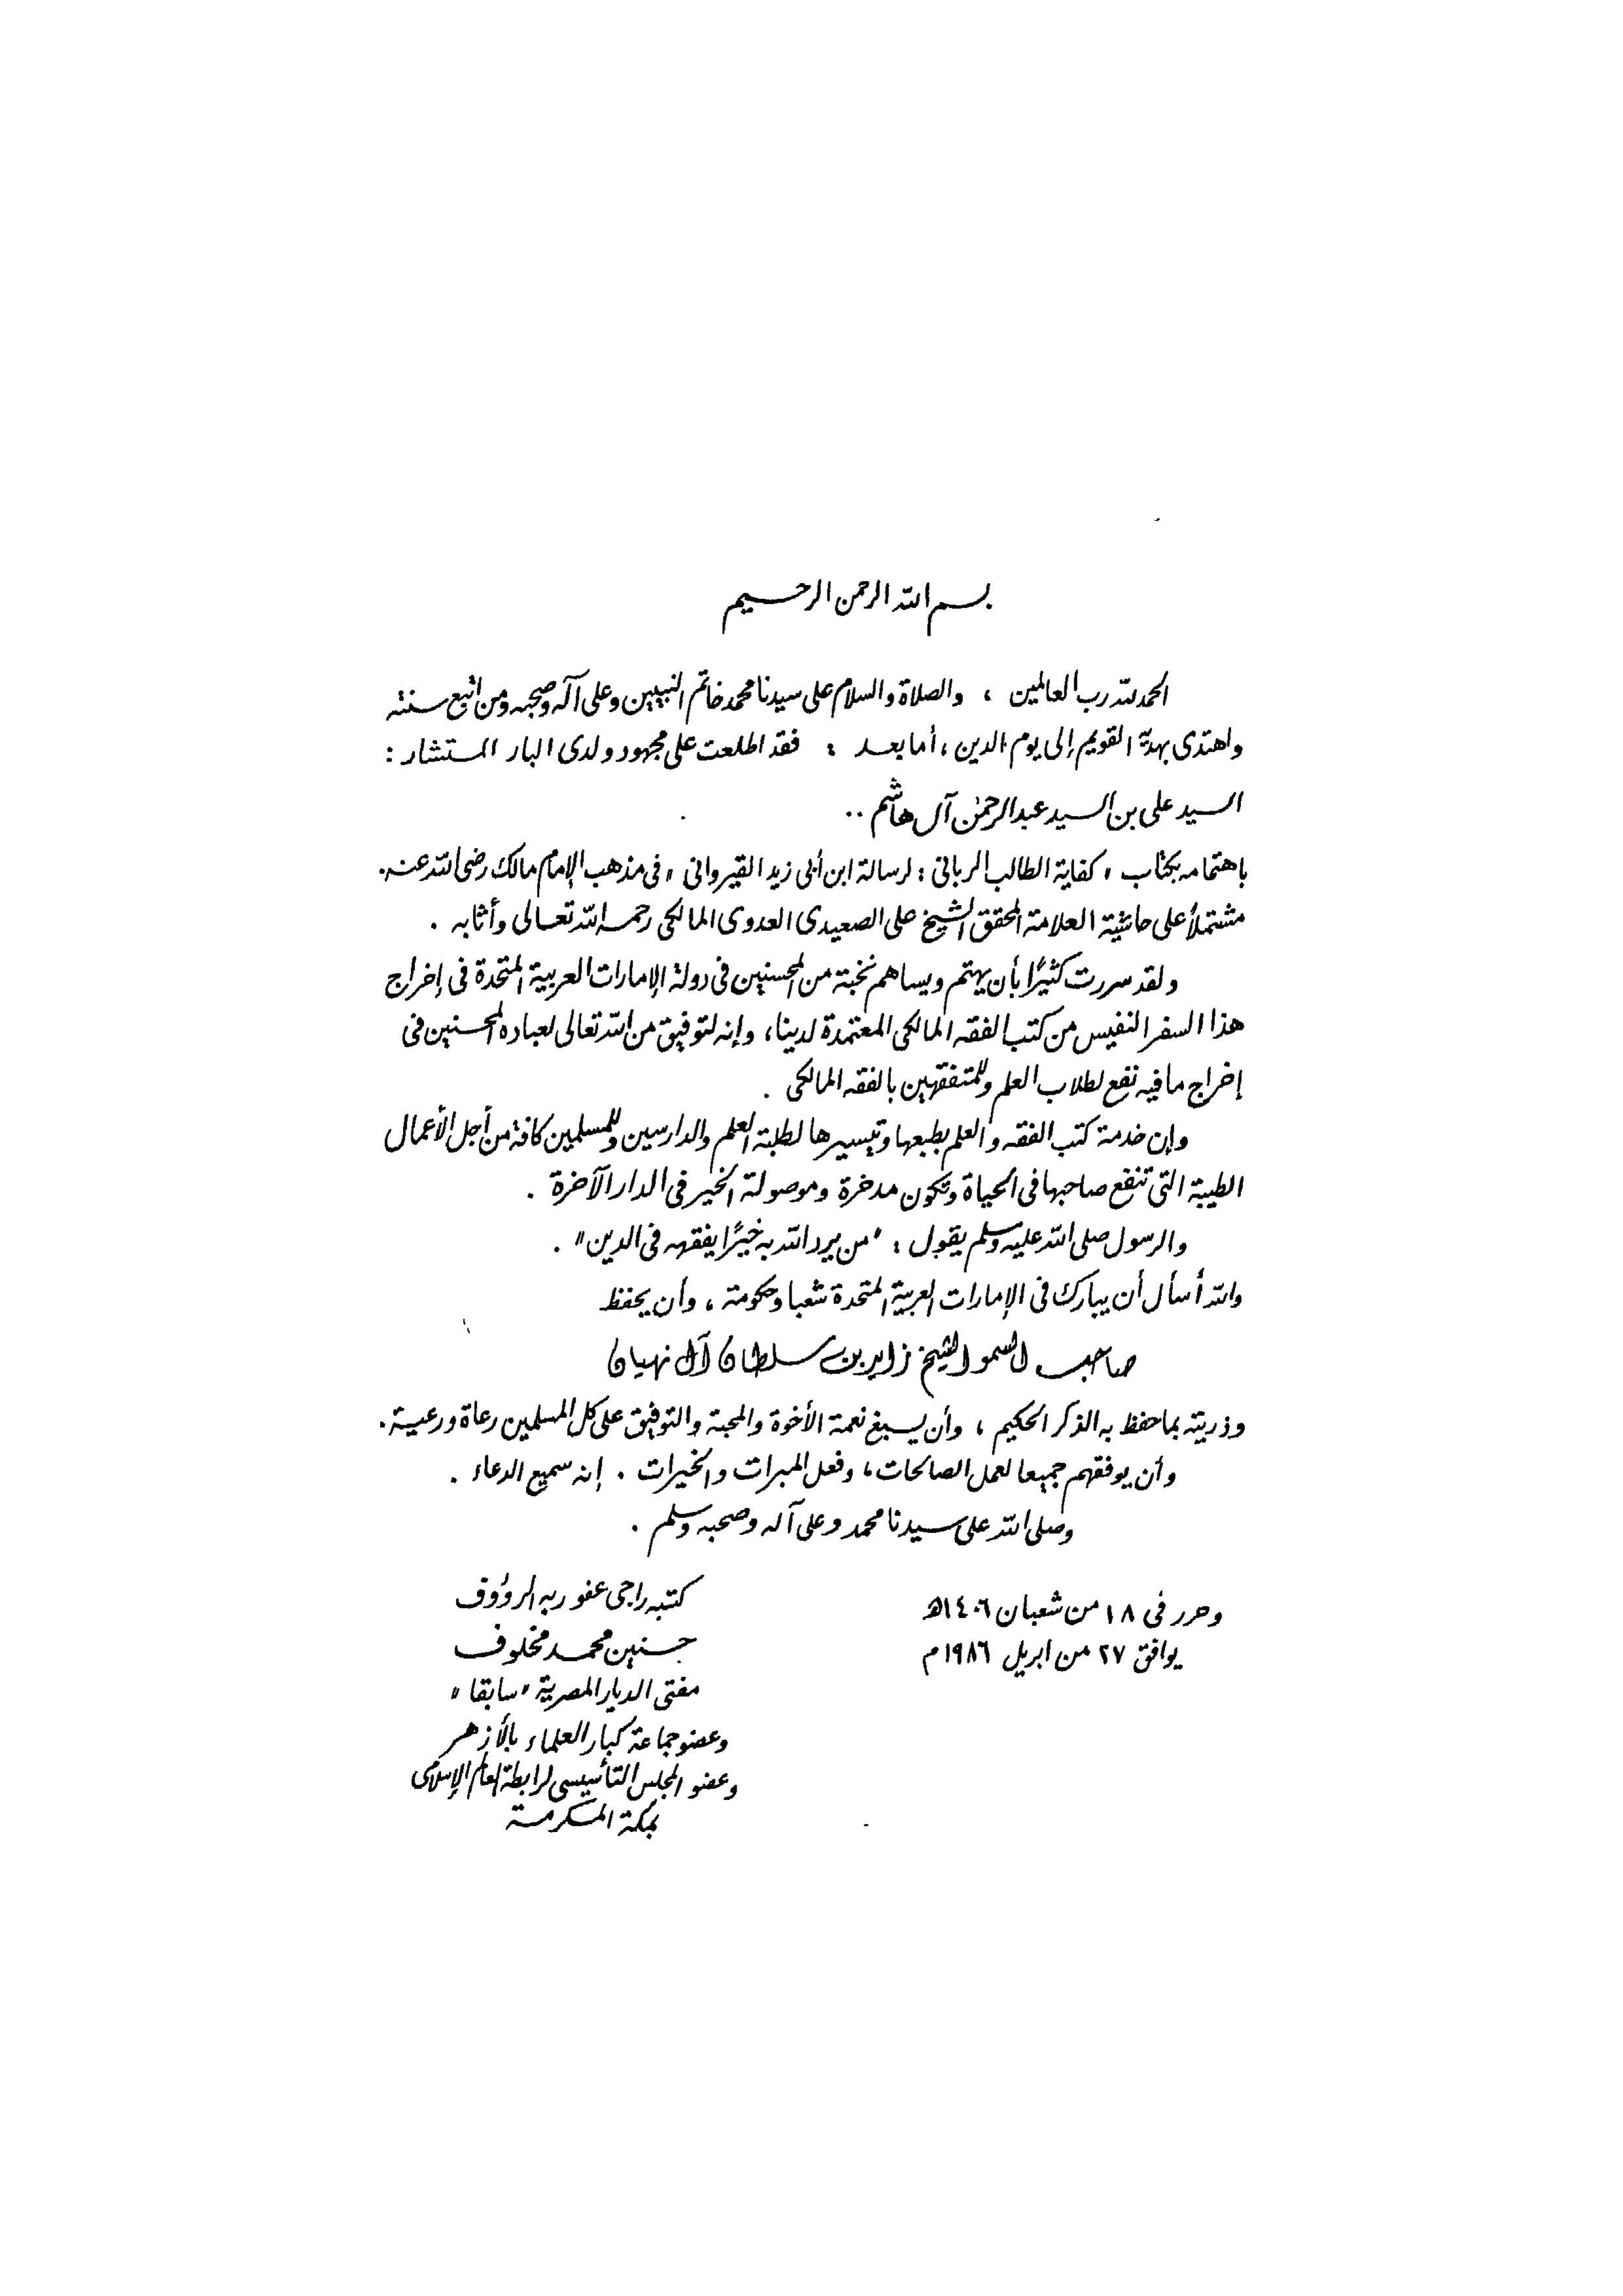 بسم الله الرحمن الرحيم
الحمد لله رب العالمين ، والصلاة والسلام على سيدنا محمد خاتم النبيين وعلى آله وصحبه ومن اتبع سنته
واهتدى بهديه القويم إلى يوم الدين ، أما بعد : فقد اطلعت على مجهود ولدى البار المستشار :
السيد على بن السيد عبد الرحمن آل هاشم ..
باهتمامه بكتاب " كفاية الطالب الربانى : لرسالة ابن أبى زيد القيروانى " فى مذهب الإمام مالك رضى الله عنه .
مشتملاً على حاشية العلامة المحقق الشيخ على الصعيدى العدوى المالكى رحمه الله تعالى وأثابه .
ولقد سررت كثيرًا بأن يهتم ويساهم نخبة من المحسنين فى دولة الإمارات العربية المتحدة فى إخراج
هذا السفر النفيس من كتب الفقه المالكى المعتمدة لدينا ، وإنه لتوفيق من الله تعالى لعباده المحسنين فى
إخراج ما فيه نفع لطلاب العلم وللمتفقهين بالفقه المالكى .
وإن خدمة كتب الفقه والعلم بطبعها وتيسيرها لطلبة العلم والدارسين وللمسلمين كافة من أجل الأعمال
الطيبة التى تنفع صاحبها فى الحياة وتكون مدخرة وموصولة الخير فى الدار الآخرة .
والرسول صلى الله عليه وسلم يقول : " من يرد الله به خيرًا يفقهه فى الدين " .
والله أسأل أن يبارك فى الإمارات العربية المتحدة شعبا وحكومة ، وأن يحفظ
صاحب السمو الشيخ زايد بن سلطان آل نهيان
وذريته بما حفظ به الذكر الحكيم ، وأن يسبغ نعمة الأخوة والمحبة والتوفيق على كل المسلمين رعاة ورعية .
وأن يوفقهم جميعا لعمل الصالحات ، وفعل المبرات والخيرات . إنه سميع الدعاء .
وصلى الله على سيدنا محمد وعلى آله وصحبه وسلم .
وحرر فى ١٨ من شعبان ١٤٠٦هـ
يوافق ٢٧ من ابريل ١٩٨٦م
كتبه راجى عفو ربه الرؤوف
حسنين محمد مخلوف
مفتى الديار المصرية " سابقا "
وعضو جماعة كبار العلماء بالأزهر
وعضو المجلس التأسيسى لرابطة العالم الإسلامى
بمكة المكرمة